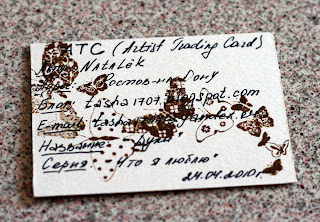 ATC (Artist Trading Card)
NataLёk
Ростов-на-Дону
Блог: tasha1707.blogspot.com
E-mail: tasha
Название:
Серия "Что я люблю"
24.04.2010г.